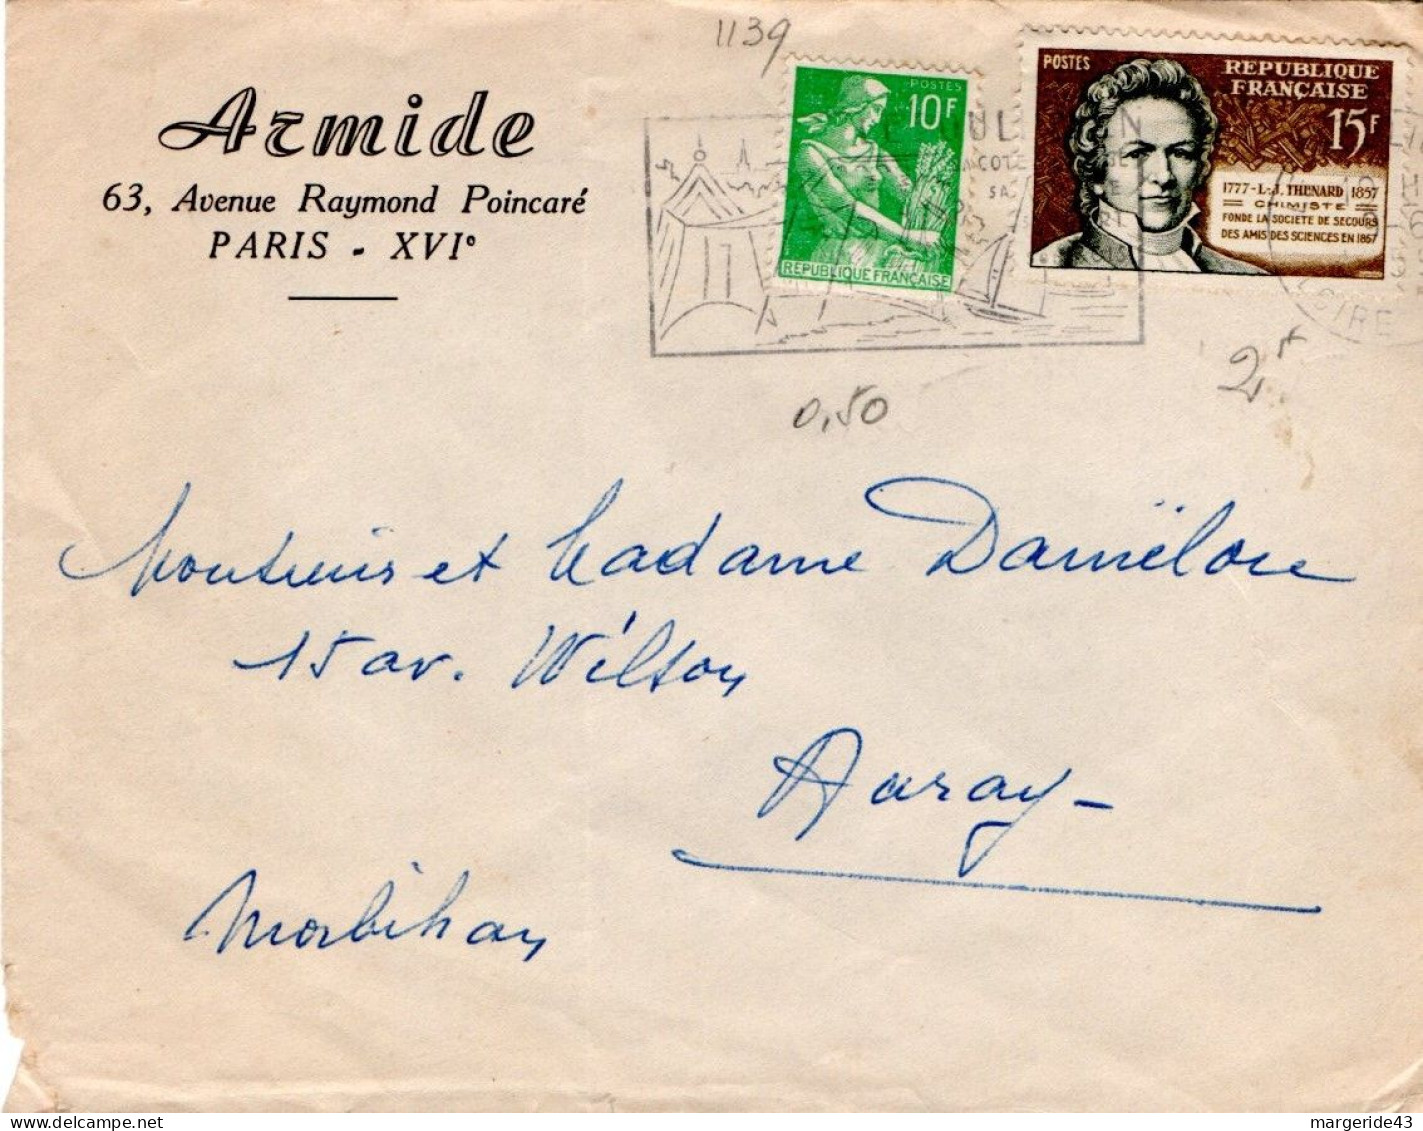 1139
Armide
63, Avenue Raymond Poincaré
PARIS - XVIe
POSTES
10F
REPUBLIQUE FRANÇAISE
POSTES
REPUBLIQUE
FRANÇAISE
15F
1777-L.-J. THENARD 1857
CHIMISTE
FONDE LA SOCIETE DE SECOURS
DES AMIS DES SCIENCES EN 1857
SA COTE
LOIRE
2,
0,50
Monsieurs et Madame Daniëlou
15 av. Wilson
Auray-
Morbihan
margeride43
delcampe.net